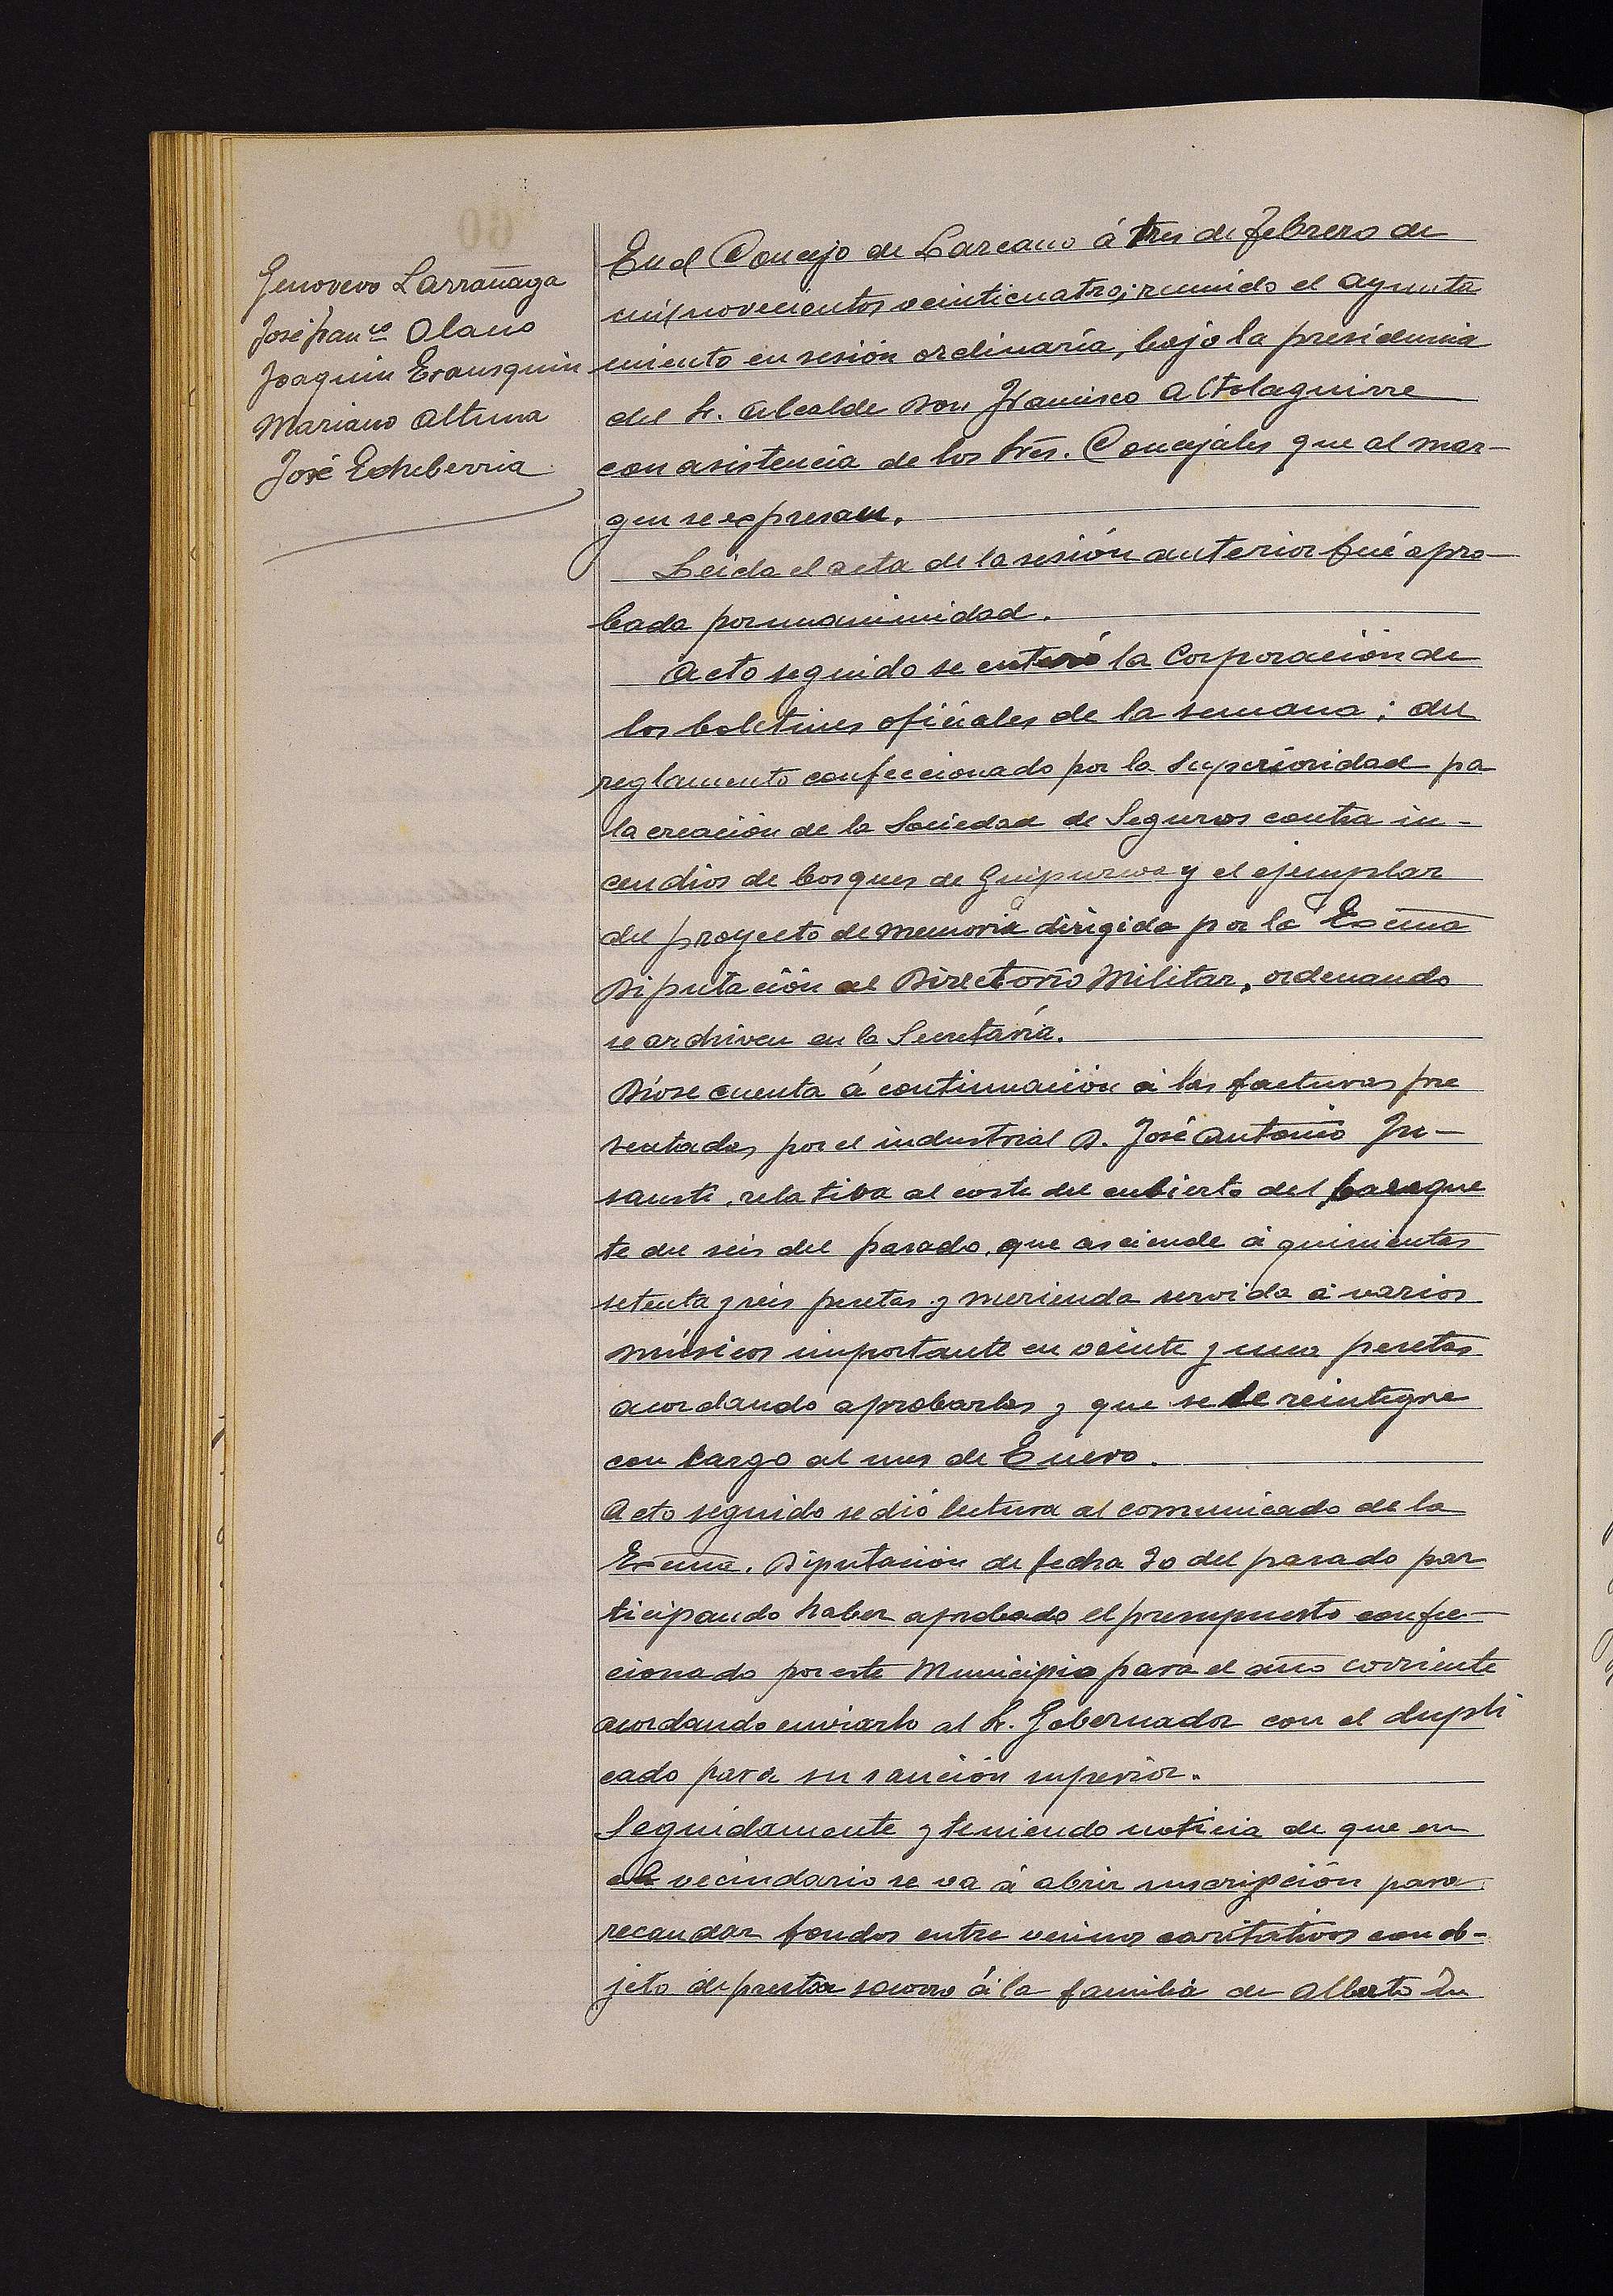 Genovevo Larrañaga
José Franco Olano
Joaquin Erausquin
Mariano Altuna
José Echeberria
En el Concejo de Lazcano á tres de febrero de
mil novecientos veinticuatro; reunido el Ayunta
miento en sesión ordinaria, bajo la presidencia
del Sr. Alcalde Don Francisco Altolaguirre
con asistencia de los Sres. Concejales que al mar-
gen se expresan.
Leida el acta de la sesión anterior fué apro-
bada por unanimidad.
Acto seguido se enteró la Corporación de
los boletines oficiales de la semana; del
reglamento confeccionado por la Superioridad pa
la creación de la Sociedad de Seguros contra in-
cendios de bosques de Guipuzcoa y el ejemplar
del proyecto de memoria dirigida por la Excma
Diputación al Directorio Militar, ordenando
se archiven en la Secretaría.
Dióse cuenta á continuación á las facturas pre
sentadas por el industrial D. José Antonio In-
sausti, relativa al coste del cubierto del banque
te del seis del pasado, que asciende á quinientas
setenta y seis pesetas y merienda servida á varios
músicos importante en veinte y una pesetas
acordando aprobarlas y que se le reintegre
con cargo al mes de Enero.
Acto seguido se dió lectura al comunicado de la
Excma. Diputación de fecha 30 del pasado par
ticipando haber aprobado el presupuesto confec-
cionado por este Municipio para el año corriente
acordando enviarlo al Sr. Gobernador con el dupli
cado para su sanción superior.
Seguidamente y teniendo noticia de que en
el vecindario se va á abrir suscripción para
recaudar fondos entre vecinos caritativos con ob-
jeto de prestar socorro á la familia de Alberto